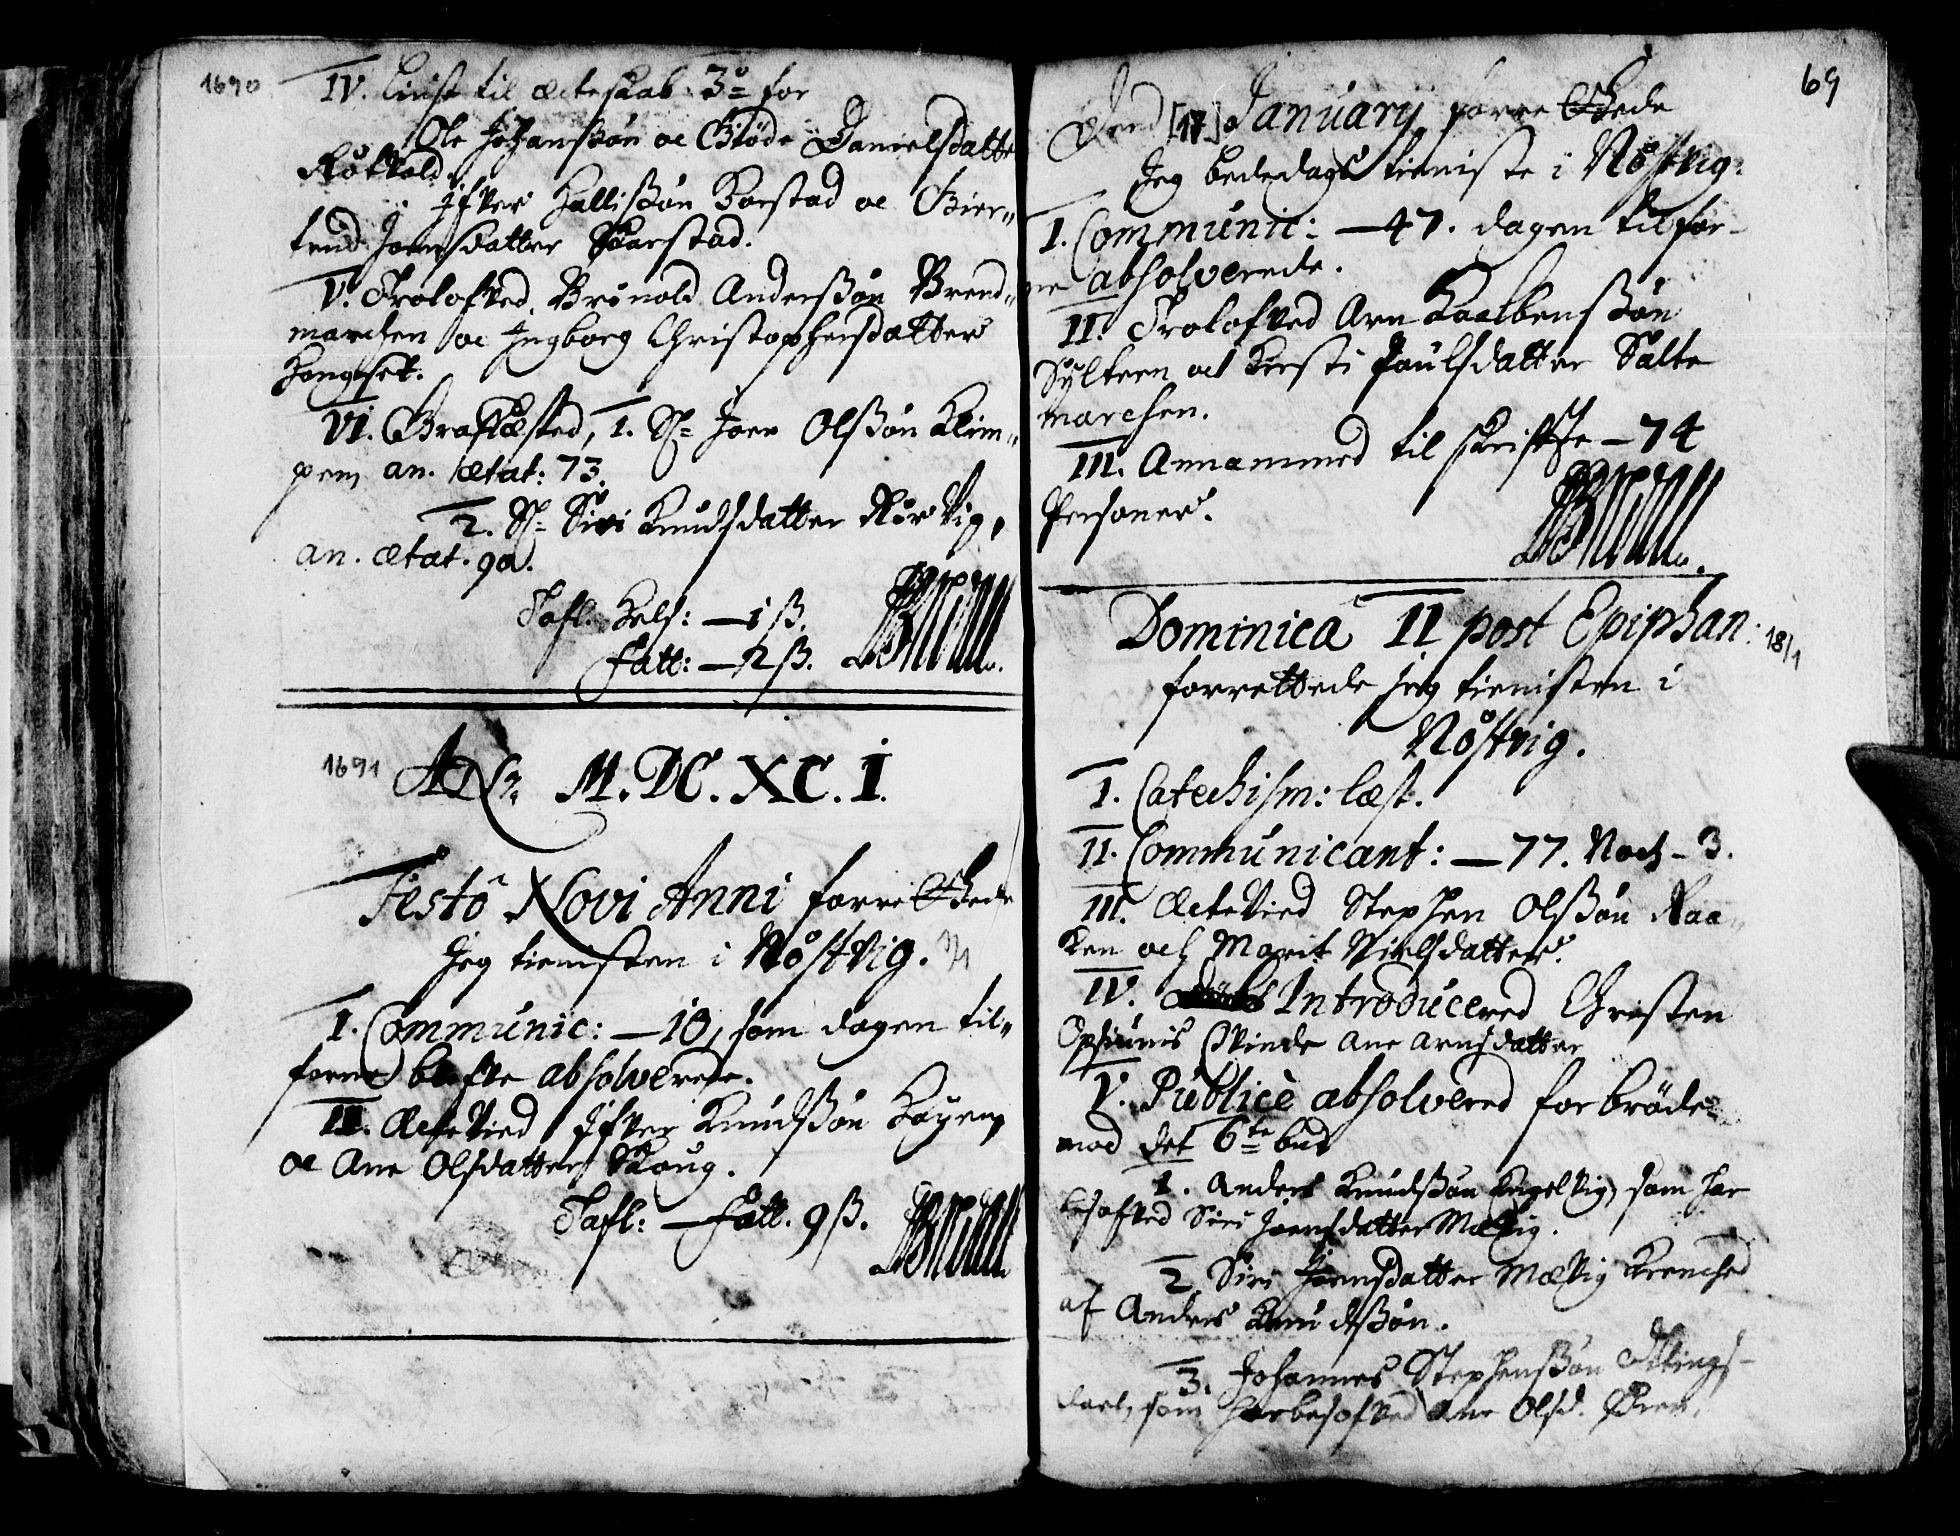 1690
IV. Liust til ecteskab 3o for
Ole Johanßøn oc Giøde Danielsdatter
Røtvold.
Ifver Hallißøn Karstad oc Gier„
trud Joensdatter Skarstad.
V. Trolofved Brinold Anderßøn Brend„
marchen oc Ingborg Christophersdatter
Hongset.
VI. Graffæsted, 1. Sl= Joen Olßøn Klim„
pem an. ætat: 73.
2. Sl= Siri Knudsdatter Rørvig,
an. ætat. 90.
Tafl. Hels: — 1 ß.
Fatt: — 12 ß.
1691 Ao M.DC.XC.I.
Festo Novi Anni forrettede
Jeg tienisten i Nøstvig. 1/1
I. Communic: — 10, som dagen til„
forne blefve absolverede.
II. Ectevied Ifver Knudßøn Høyem
oc Ane Olsdatter Skoug.
Tafl: — Fatt. 9 ß.
69
Dend [17] January forrettede
Jeg bededags tieniste i Nøstvig:
I. Communic: — 47. dagen tilfor-
ne absolverede.
II. Trolofved Arn Kaalbenßøn
Sylteen och Kirsti Paulsdatter Salte
marchen.
III. Annammed til skrifte — 74
Personer.
Dominica II post Epiphan: 18/1
forrettede jeg tienisten i
Nøstvig.
I. Catechism: læst.
II. Communicant: — 77. Noch - 3.
III. Ectevied Stephen Olßøn Raa„
ken och Marit Nielsdatter.
IV. Introducered Christen
Opsiunis Qvinde Ane Arnsdatter
V. Publicè absolvered for brøde
mod det 6te bud
1. Anders Knudßøn Engelvig, som har
besofved Siri Joensdatter Mælvig.
2. Siri Joensdatter Mælvig krenched
af Anders Knudßøn.
3. Johannes Stephenßøn Ellings-
dael, som har besofved Ane Olsd. Øren.